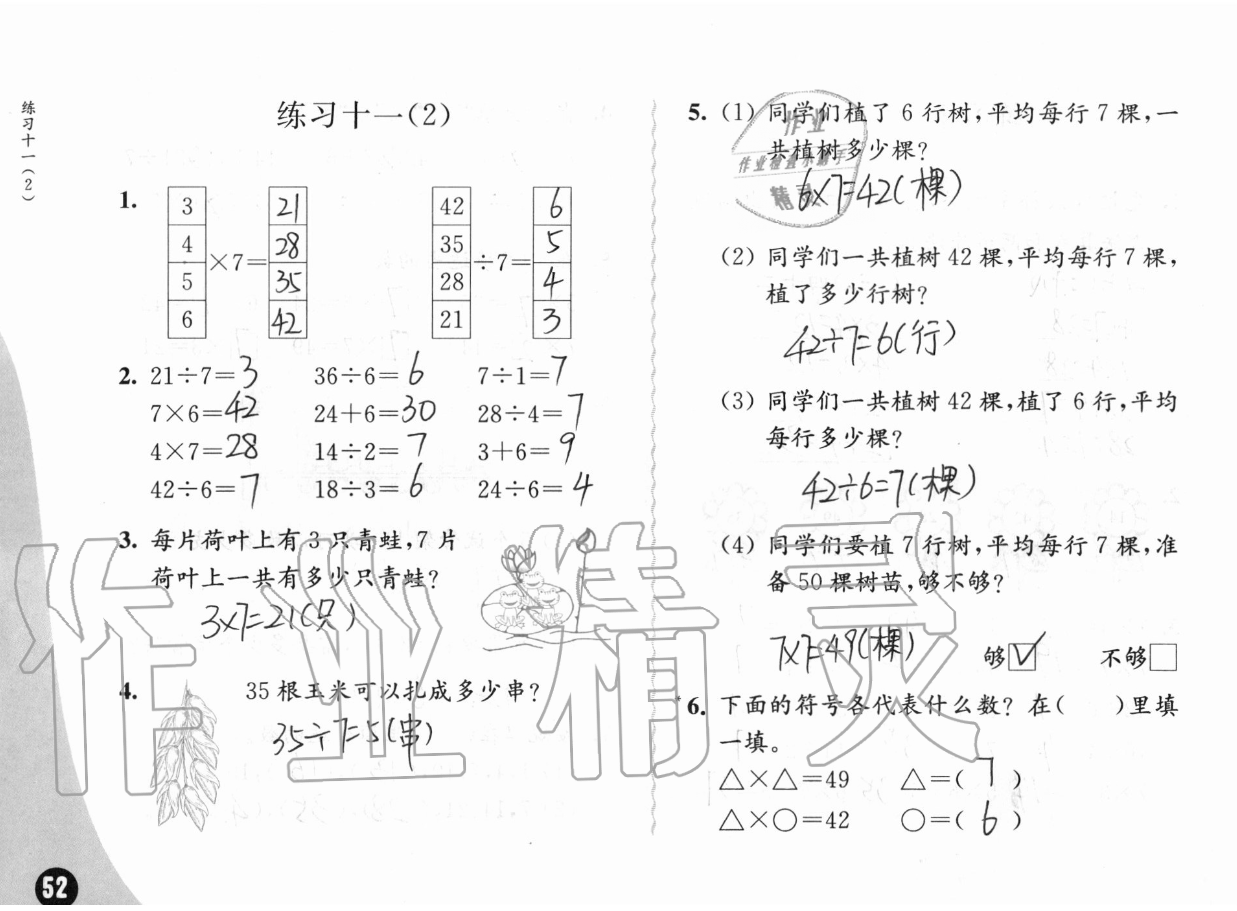 练习十一(2)
练习十一(2)
1. 3 21
4 28
×7=
5 35
6 42
42 6
35 5
÷7=
28 4
21 3
2. 21÷7=3 36÷6=6 7÷1=7
7×6=42 24+6=30 28÷4=7
4×7=28 14÷2=7 3+6=9
42÷6=7 18÷3=6 24÷6=4
3. 每片荷叶上有3只青蛙,7片
荷叶上一共有多少只青蛙?
3×7=21(只)
4. 35根玉米可以扎成多少串?
35÷7=5(串)
52
5. (1) 同学们植了6行树,平均每行7棵,一
共植树多少棵?
6×7=42(棵)
(2) 同学们一共植树42棵,平均每行7棵,
植了多少行树?
42÷7=6(行)
(3) 同学们一共植树42棵,植了6行,平均
每行多少棵?
42÷6=7(棵)
(4) 同学们要植7行树,平均每行7棵,准
备50棵树苗,够不够?
7×7=49(棵) 够☑ 不够□
*6. 下面的符号各代表什么数?在( )里填
一填。
△×△=49 △=(7)
△×○=42 ○=(6)
作业
作业检查小助手
精灵
作业精灵